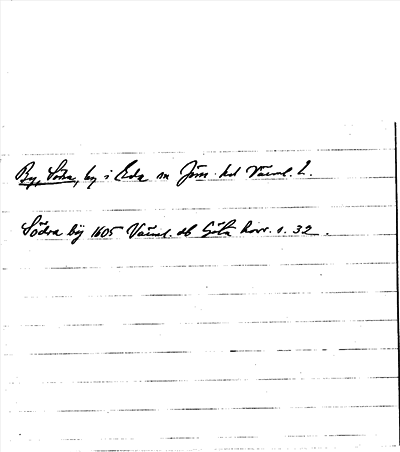 By, Södra, by i Eda sn Jöss. hd Värml. L.
Södra bÿ 1605 Värml. o Göta horr. s. 32.